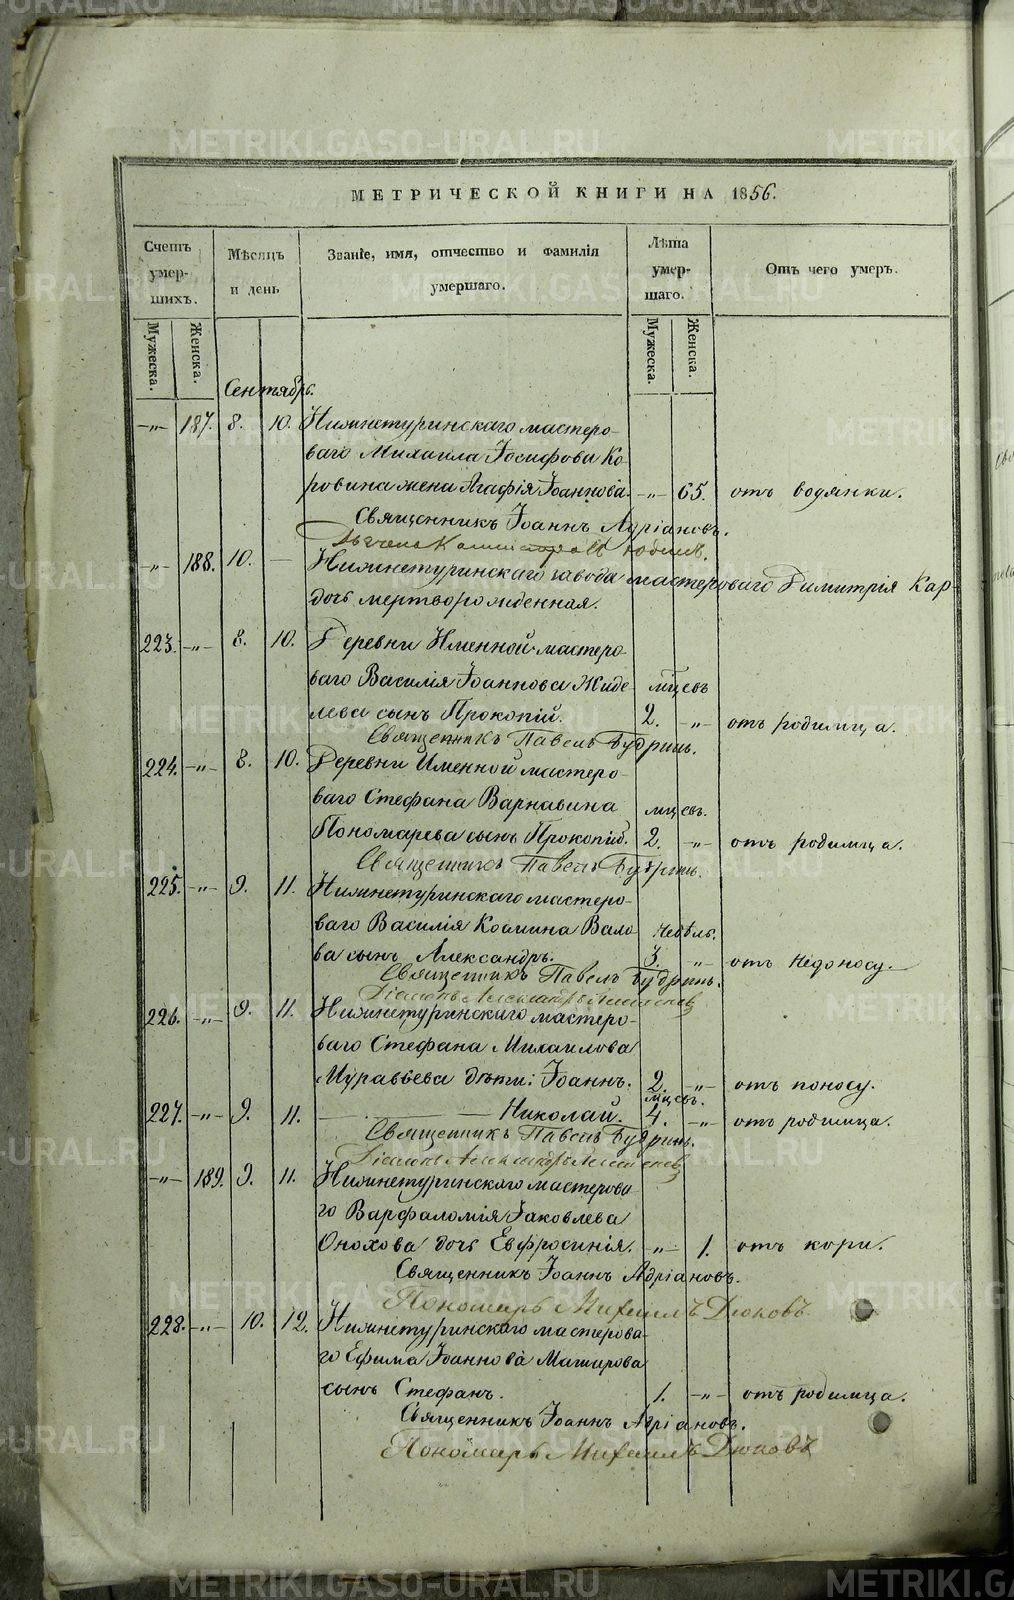 МЕТРИЧЕСКОЙ КНИГИ НА 1856.
Счетъ умер-шихъ.
Мѣсяцъ и день
Званіе, имя, отчество и фамилія умершаго.
Лѣта умер-шаго.
Отъ чего умеръ.
Мужеска. Женска. Мужеска. Женска.
Сентябрь.
-„- 187. 8. 10. Нижнетуринскаго мастеро-
ваго Михаила Іосифова Ко-
ровина жена Агафія Іоаннова. -„- 65. отъ водянки.
Священникъ Іоаннъ Адріановъ.
-„- 188. 10. — Нижнетуринскаго завода мастероваго Димитрія Кар-
дочь мертворожденная.
223. -„- 8. 10. Деревни Именной мастеро-
ваго Василія Іоаннова Жиде- мцевъ
лева сынъ Прокопій. 2. -„- отъ родимца.
Священникъ Павелъ Будринъ.
224. -„- 8. 10. Деревни Именной мастеро-
ваго Стефана Варнавина мцевъ.
Пономарева сынъ Прокопій. 2. -„- отъ родимца.
Священникъ Павелъ Будринъ.
225. -„- 9. 11. Нижнетуринскаго мастеро-
ваго Василія Козмина Вало- недѣль.
ва сынъ Александръ. 3. -„- отъ недоносу.
Священникъ Павелъ Будринъ.
Діаконъ Александръ
226. -„- 9. 11. Нижнетуринскаго мастеро-
ваго Стефана Михаилова
Муравьева дѣти: Іоаннъ. 2. -„- отъ поносу.
мцевъ.
227. -„- 9. 11. — — Николай. 4. -„- отъ родимца.
Священникъ Павелъ Будринъ.
Діаконъ Александръ
-„- 189. 9. 11. Нижнетуринскаго мастерова-
го Варфаломія Іаковлева
Онохова дочь Евфросинія. -„- 1. отъ кори.
Священникъ Іоаннъ Адріановъ.
Пономарь Михаилъ Дюковъ
228. -„- 10. 12. Нижнетуринскаго мастерова-
го Ефима Іоаннова Машарова
сынъ Стефанъ. 1. -„- отъ родимца.
Священникъ Іоаннъ Адріановъ.
Пономарь Михаилъ Дюковъ
METRIKI.GASO-URAL.RU